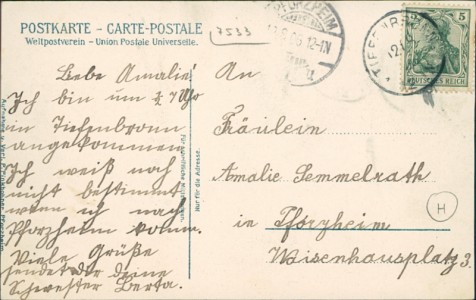 POSTKARTE - CARTE-POSTALE
Weltpostverein - Union Postale Universelle.
7533
PFORZHEIM
12-1N
TIEFENBRONN
5
DEUTSCHES REICH
Liebe Amalie!
Ich bin um 3/4 7 Uhr
in Tiefenbronn
angekommen
Ich weiß noch
nicht bestimmt
wenn ich nach
Pforzheim komm.
Viele Grüße
sendet dir deine
Schwester Berta.
Für schriftliche Mitteilungen.
Nur für die Adresse.
An
Fräulein
Amalie Semmelrath
in Pforzheim
Waisenhausplatz 3.
H